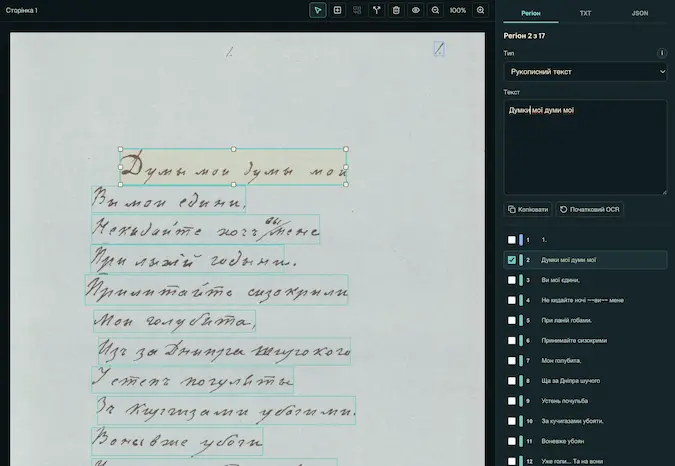 Сторінка 1
100%
1.
1.
Думы мои думы мои
Вы мои едыни,
Некыдайте хочъ вы мене
При лыхій годыни.
Прилитайте сизокрыли
Мои голубята,
Изъ за Днипра широкого
У степъ погуляты
Зъ киргизами убогими.
Воны вже убоги
Регіон
TXT
JSON
Регіон 2 з 17
Тип
Рукописний текст
Текст
Думки мої думи мої
Копіювати
Початковий OCR
1 1.
2 Думки мої думи мої
3 Ви мої єдини,
4 Не кидайте ночі ~~ви~~ мене
5 При ланій гобами.
6 Принимайте сизокрими
7 Мон голубита,
8 Ща за Дніпра шучого
9 Устень почульба
10 За кучигазами убояти,
11 Воневже убоян
12 Уже голи... Та на вони